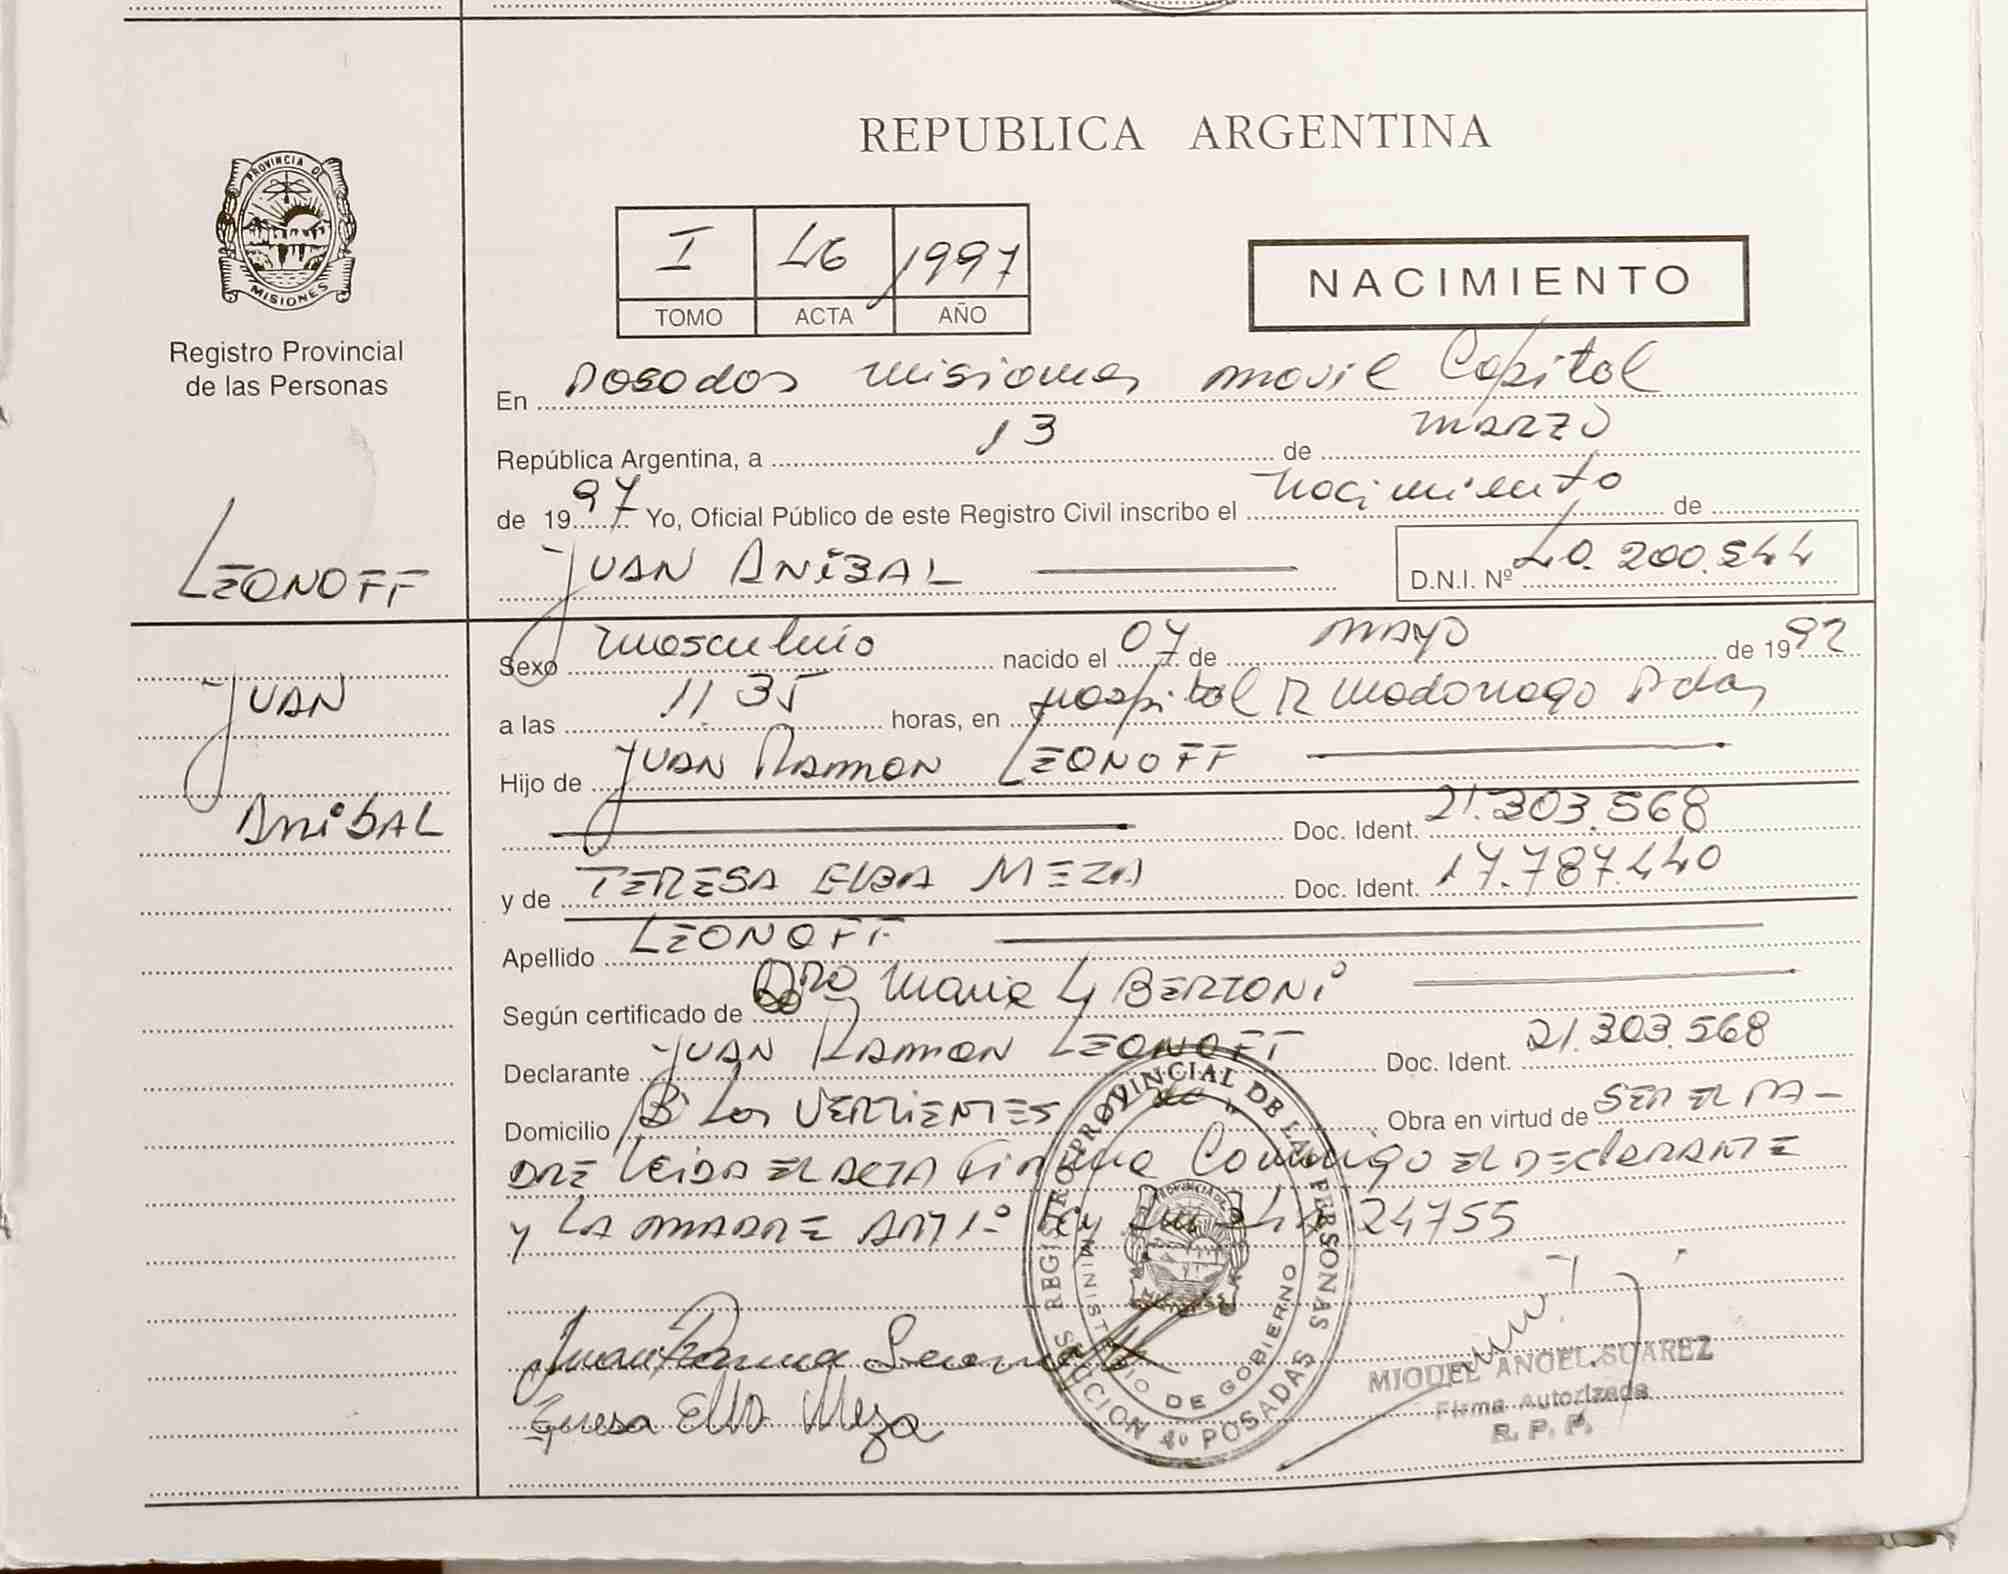 PROVINCIA DE
MISIONES
Registro Provincial
de las Personas
LEONOFF
JUAN
ANIBAL
REPUBLICA ARGENTINA
I 46 1997
TOMO ACTA AÑO
NACIMIENTO
En Posadas Misiones movil Capital
República Argentina, a 13 de marzo
de 1997 Yo, Oficial Público de este Registro Civil inscribo el nacimiento de
JUAN ANIBAL D.N.I. Nº 40.200.544
Sexo masculino nacido el 07 de MAYO de 1992
a las 11.35 horas, en Hospital R Madariaga Pdas
Hijo de JUAN RAMON LEONOFF
Doc. Ident. 21.303.568
y de TERESA ELBA MEZA Doc. Ident. 17.787.440
Apellido LEONOFF
Según certificado de DRA Maria L BERTONI
Declarante JUAN RAMON LEONOFF Doc. Ident. 21.303.568
Domicilio Bº Las VERTIENTES Obra en virtud de SER EL PA-
DRE leida EL ACTA Firma Conmigo EL DEClARANTE
y LA MADRE ART 1º Ley 24755
Juan Ramon Leonoff
Teresa Elba Meza
REGISTRO PROVINCIAL DE LAS PERSONAS
MINISTERIO DE GOBIERNO
POSADAS
MIGUEL ANGEL SUAREZ
Firma Autorizada
R. P. P.